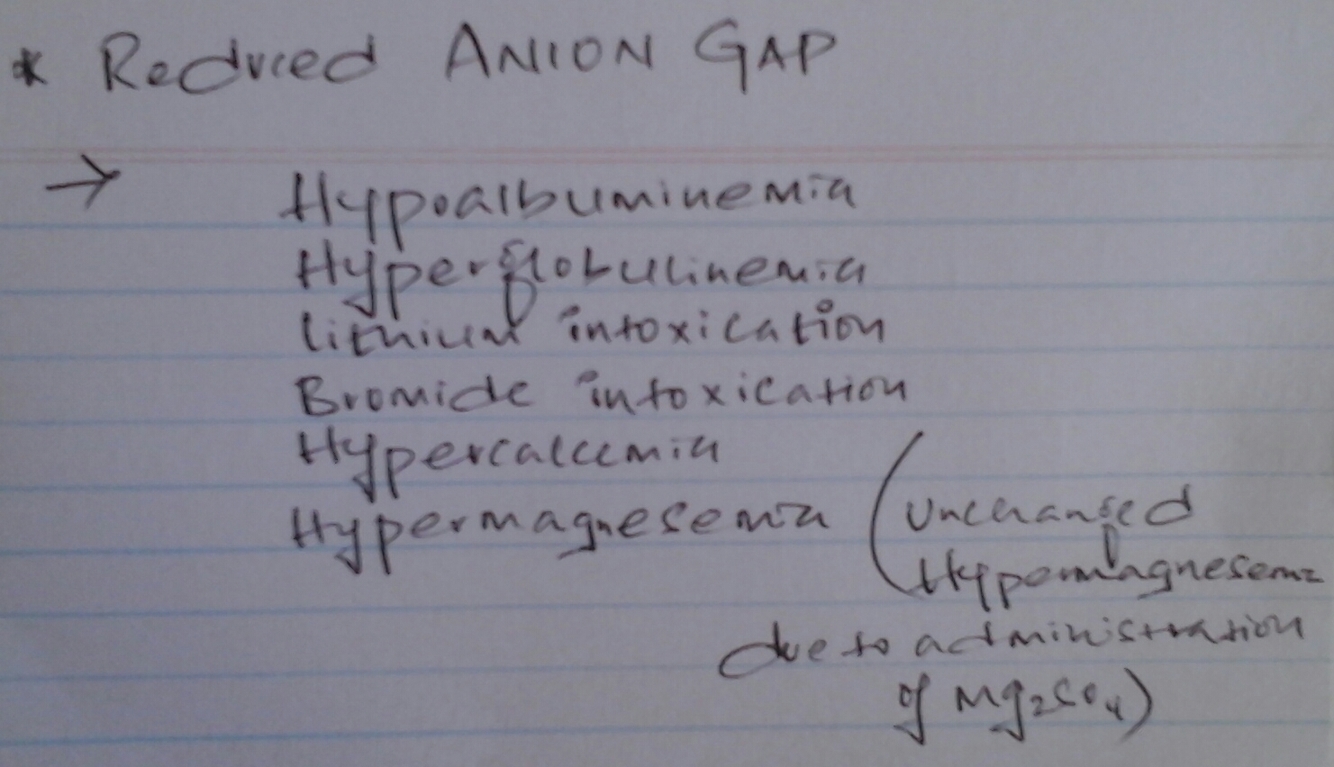 * Reduced ANION GAP
→ Hypoalbuminemia
Hyperglobulinemia
Lithium intoxication
Bromide intoxication
Hypercalcemia
Hypermagnesemia (unchanged
Hypermagnesemia
due to administration
of Mg₂SO₄)